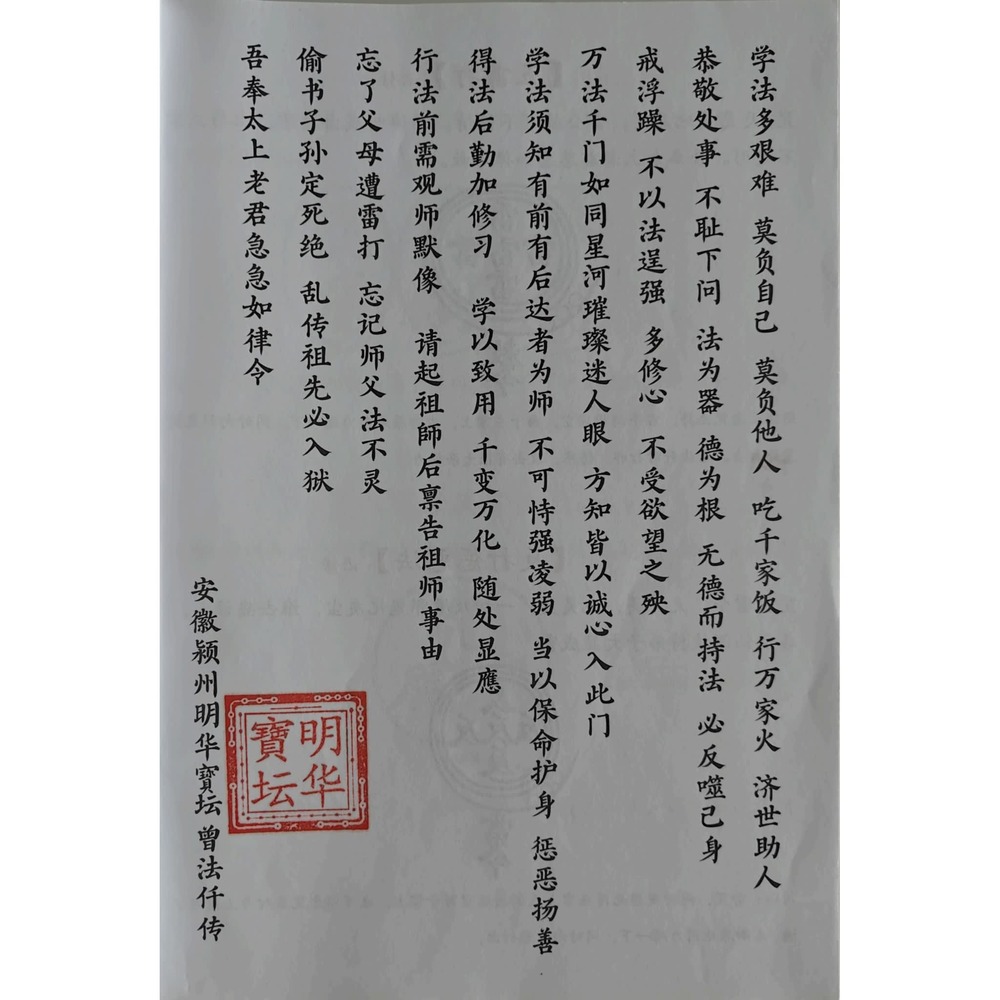 学法多艰难 莫负自己 莫负他人 吃千家饭 行万家火 济世助人
恭敬处事 不耻下问 法为器 德为根 无德而持法 必反噬己身
戒浮躁 不以法逞强 多修心 不受欲望之殃
万法千门如同星河璀璨迷人眼 方知皆以诚心入此门
学法须知有前有后达者为师 不可恃强凌弱 当以保命护身 惩恶扬善
得法后勤加修习 学以致用 千变万化 随处显應
行法前需观师默像 请起祖師后禀告祖师事由
忘了父母遭雷打 忘记师父法不灵
偷书子孙定死绝 乱传祖先必入狱
吾奉太上老君急急如律令
安徽颍州明华寳坛曾法仟传
明华
寶坛